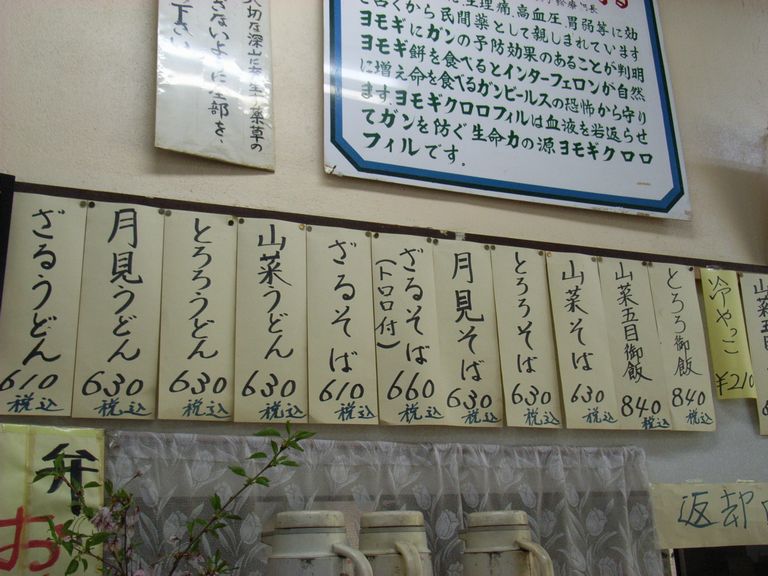 生理痛、高血圧、胃弱等に効
く から民間薬として親しまれています
ヨモギにガンの予防効果のあることが判明
ヨモギ餅を食べるとインターフェロンが自然
に増え命を食べるガンビールスの恐怖から守り
ます。ヨモギクロロフィルは血液を若返らせ
てガンを防ぐ生命力の源ヨモギクロロ
フィルです。
大切な深山に
薬草の
ざないよ
に全部を、
下さい
ざるうどん
610
税込
月見うどん
630
税込
とろろうどん
630
税込
山菜うどん
630
税込
ざるそば
610
税込
ざるそば
(トロロ付)
660
税込
月見そば
630
税込
とろろそば
630
税込
山菜そば
630
税込
山菜五目御飯
840
税込
とろろ御飯
840
税込
冷やっこ
¥210
山菜五目
弁
お
返却